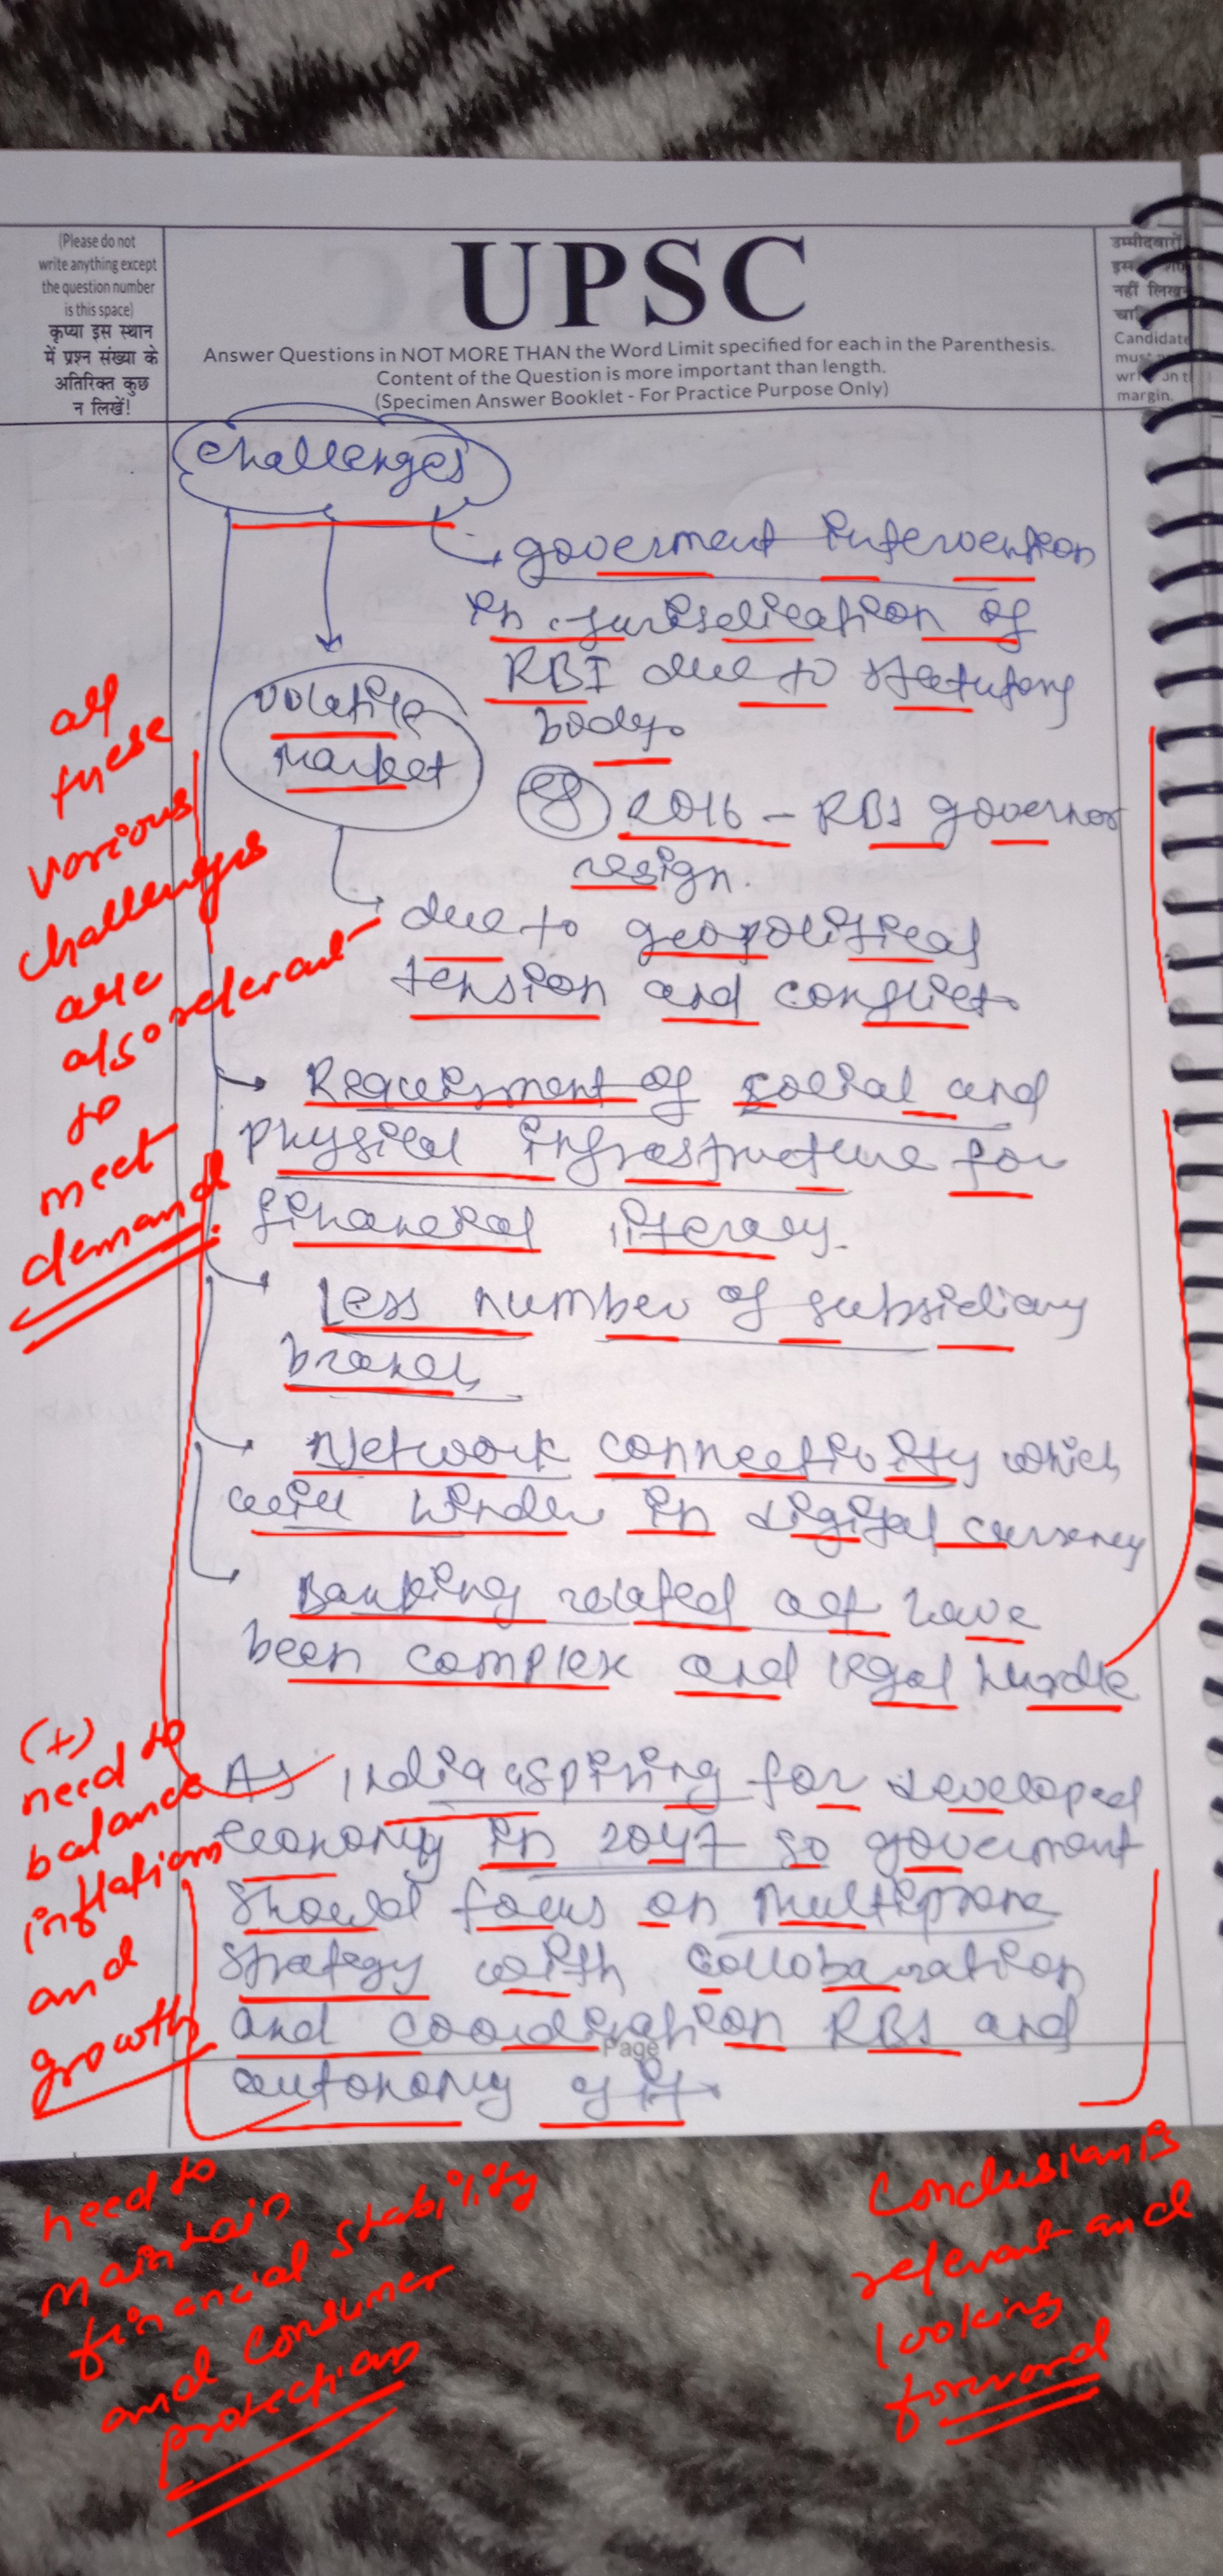 (Please do not
write anything except
the question number
is this space)
कृप्या इस स्थान
में प्रश्न संख्या के
अतिरिक्त कुछ
न लिखें!
UPSC
Answer Questions in NOT MORE THAN the Word Limit specified for each in the Parenthesis.
Content of the Question is more important than length.
(Specimen Answer Booklet - For Practice Purpose Only)
उम्मीदवारों
इस
नहीं लिख
Candidate
must
margin.
challenges
goverment intervention
in jurisdication of
RBI due to statutory
body.
volatile
market
eg 2016 - RBI governor
resign.
due to geopolitical
tension and conflict.
Requirement of social and
physical infrastructure for
financial literacy.
Less number of subsidiary
branch.
Network connectivity which
will hinder in digital currency
Banking related act have
been complex and legal hurdle
As India aspiring for developed
economy in 2047 so goverment
should focus on multiprone
strategy with collobaration
and coordination RBI and
autonomy of it.
Page
all
these
various
challenges
are
also relevant
to
meet
demand.
(+)
need to
balance
inflation
and
growth
need to
maintain
financial stability
and consumer
protection
Conclusion is
relevant and
looking
forward